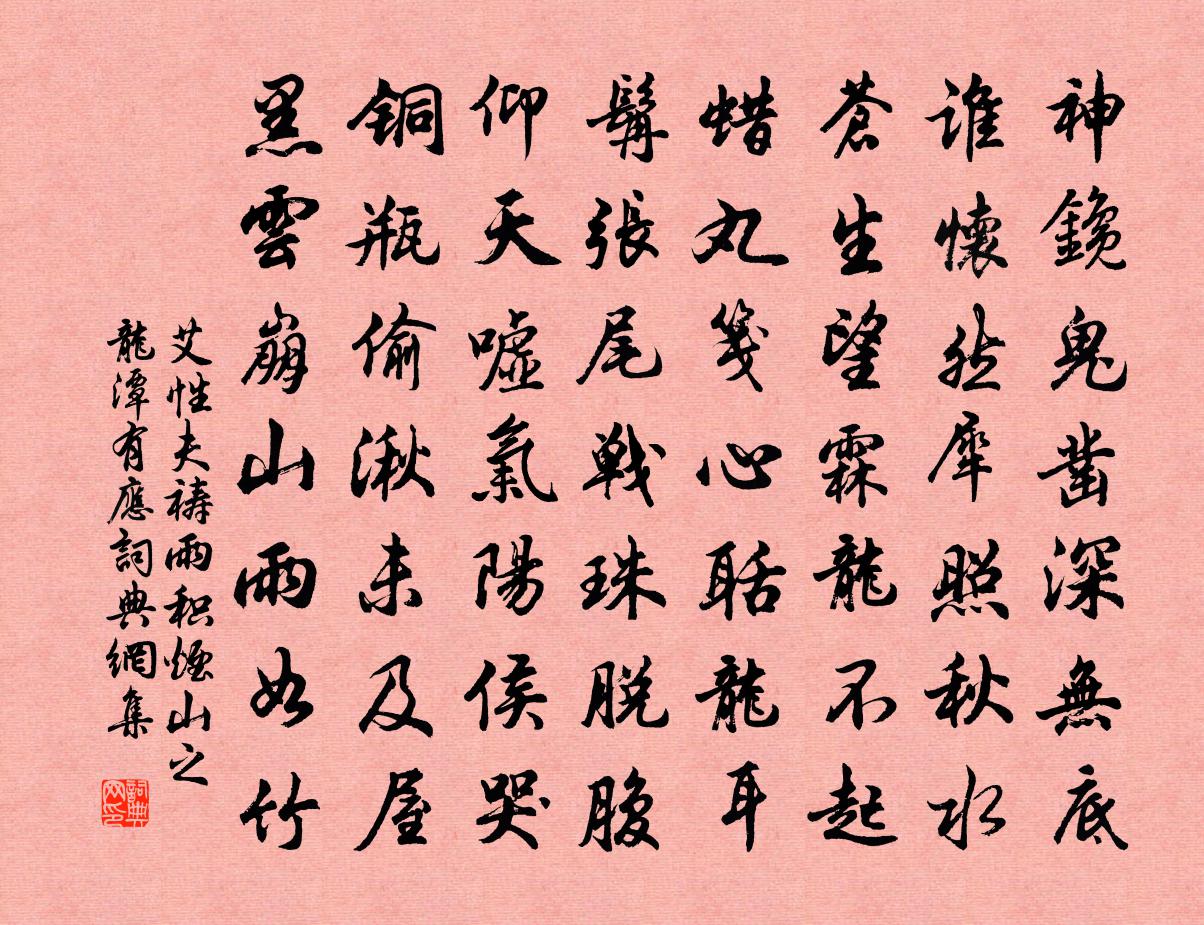 神鑱鬼凿深無底
誰懷然犀照秋水
蒼生望霖龍不起
蜡丸箋心聒龍耳
髯張尾戰珠脱腹
仰天嘘氣陽侯哭
铜瓶偷湫未及屋
黑雲崩山雨如竹
艾性夫禱雨积煙山之
龍潭有應詞典網集
詞典網印